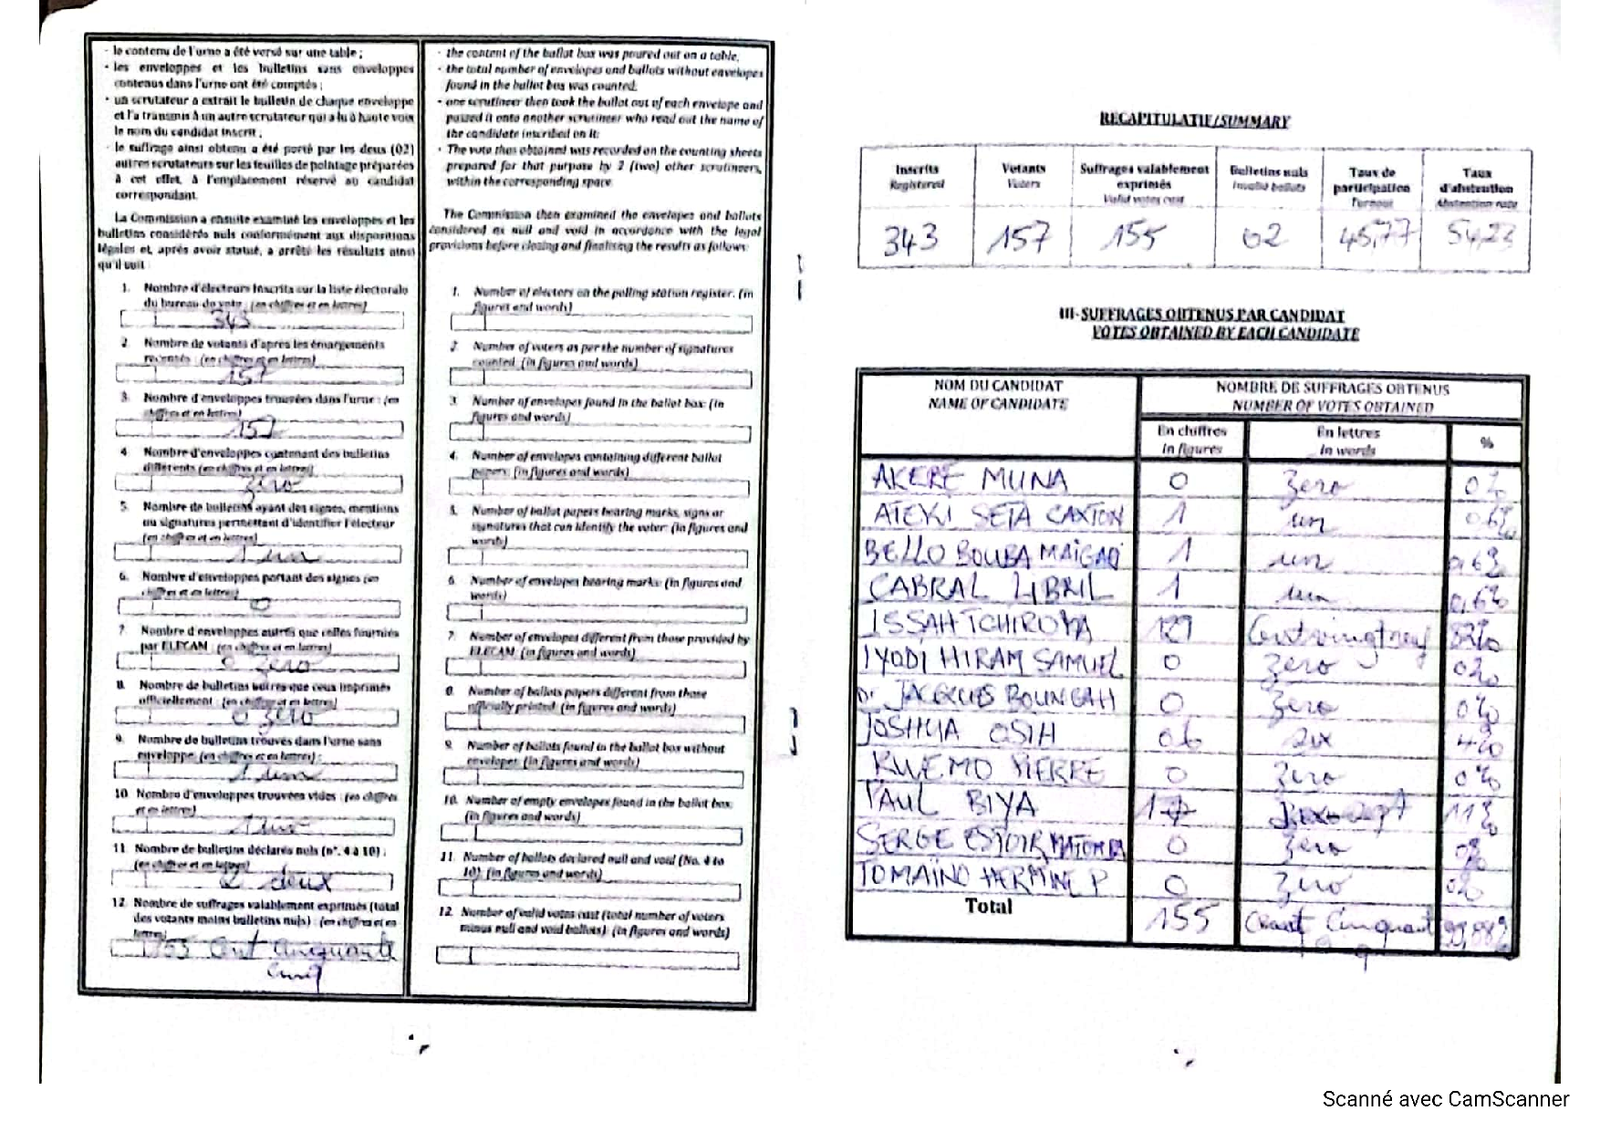 - le contenu de l'urne a été versé sur une table ;
- les enveloppes et les bulletins sans enveloppes
contenus dans l'urne ont été comptés ;
- un scrutateur a extrait le bulletin de chaque enveloppe
et l'a transmis à un autre scrutateur qui a lu à haute voix
le nom du candidat inscrit ;
- le suffrage ainsi obtenu a été porté par les deux (02)
autres scrutateurs sur les feuilles de pointage préparées
à cet effet, à l'emplacement réservé au candidat
correspondant.
La Commission a ensuite examiné les enveloppes et les
bulletins considérés nuls conformément aux dispositions
légales et, après avoir statué, a arrêté les résultats ainsi
qu'il suit :
1. Nombre d'électeurs inscrits sur la liste électorale
du bureau de vote : (en chiffres et en lettres)
343
2. Nombre de votants d'après les émargements
recensés : (en chiffres et en lettres)
157
3. Nombre d'enveloppes trouvées dans l'urne : (en
chiffres et en lettres)
157
4. Nombre d'enveloppes contenant des bulletins
différents (en chiffres et en lettres)
zéro
5. Nombre de bulletins ayant des signes, mentions
ou signatures permettant d'identifier l'électeur
(en chiffres et en lettres)
1 un
6. Nombre d'enveloppes portant des signes (en
chiffres et en lettres)
0
7. Nombre d'enveloppes autres que celles fournies
par ELECAM : (en chiffres et en lettres)
0 zéro
8. Nombre de bulletins autres que ceux imprimés
officiellement : (en chiffres et en lettres)
0 zéro
9. Nombre de bulletins trouvés dans l'urne sans
enveloppe : (en chiffres et en lettres) :
1 un
10. Nombre d'enveloppes trouvées vides : (en chiffres
et en lettres)
11. Nombre de bulletins déclarés nuls (n°. 4 à 10) :
(en chiffres et en lettres)
2 deux
12. Nombre de suffrages valablement exprimés (total
des votants moins bulletins nuls) : (en chiffres et en
lettres)
155 Cent cinquante
cinq
- the content of the ballot box was poured out on a table,
- the total number of envelopes and ballots without envelopes
found in the ballot box was counted;
- one scrutineer then took the ballot out of each envelope and
passed it onto another scrutineer who read out the name of
the candidate inscribed on it;
- The vote thus obtained was recorded on the counting sheets
prepared for that purpose by 2 (two) other scrutineers,
within the corresponding space.
The Commission then examined the envelopes and ballots
considered as null and void in accordance with the legal
provisions before closing and finalising the results as follows:
1. Number of electors on the polling station register. (in
figures and words)
2. Number of voters as per the number of signatures
counted: (in figures and words)
3. Number of envelopes found in the ballot box: (in
figures and words)
4. Number of envelopes containing different ballot
papers: (in figures and words)
5. Number of ballot papers bearing marks, signs or
signatures that can identify the voter: (in figures and
words)
6. Number of envelopes bearing marks: (in figures and
words)
7. Number of envelopes different from those provided by
ELECAM: (in figures and words)
8. Number of ballots papers different from those
officially printed: (in figures and words)
9. Number of ballots found in the ballot box without
envelopes: (in figures and words)
10. Number of empty envelopes found in the ballot box:
(in figures and words)
11. Number of ballots declared null and void (No. 4 to
10): (in figures and words)
12. Number of valid votes cast (total number of voters
minus null and void ballots): (in figures and words)
RECAPITULATIF/SUMMARY
Inscrits Votants Suffrages valablement exprimés Bulletins nuls Taux de participation Taux d'abstention
Registered Voters Valid votes cast Invalid ballots Turnout Abstention rate
343 157 155 02 45,77 54,23
III- SUFFRAGES OBTENUS PAR CANDIDAT
VOTES OBTAINED BY EACH CANDIDATE
NOM DU CANDIDAT NOMBRE DE SUFFRAGES OBTENUS
NAME OF CANDIDATE NUMBER OF VOTES OBTAINED
En chiffres En lettres %
in figures in words
AKERE MUNA 0 Zero 0%
ATEKI SETA CAXTON 1 un 0,6%
BELLO BOUBA MAIGARI 1 un 0,6%
CABRAL LIBRIL 1 un 0,6%
ISSAH TCHIROMA 129 Cent vingt neuf 82%
IYODI HIRAM SAMUEL 0 zero 0%
Dr JACQUES BOUNGAH 0 Zero 0%
JOSHUA OSIH 06 six 4%
KWEMO PIERRE 0 Zero 0%
PAUL BIYA 17 Dix sept 11%
SERGE ESPOIR MATOMBA 0 Zero 0%
TOMAÏNO HERMINE P 0 Zero 0%
Total 155 Cent Cinquant 99,88%
Scanné avec CamScanner